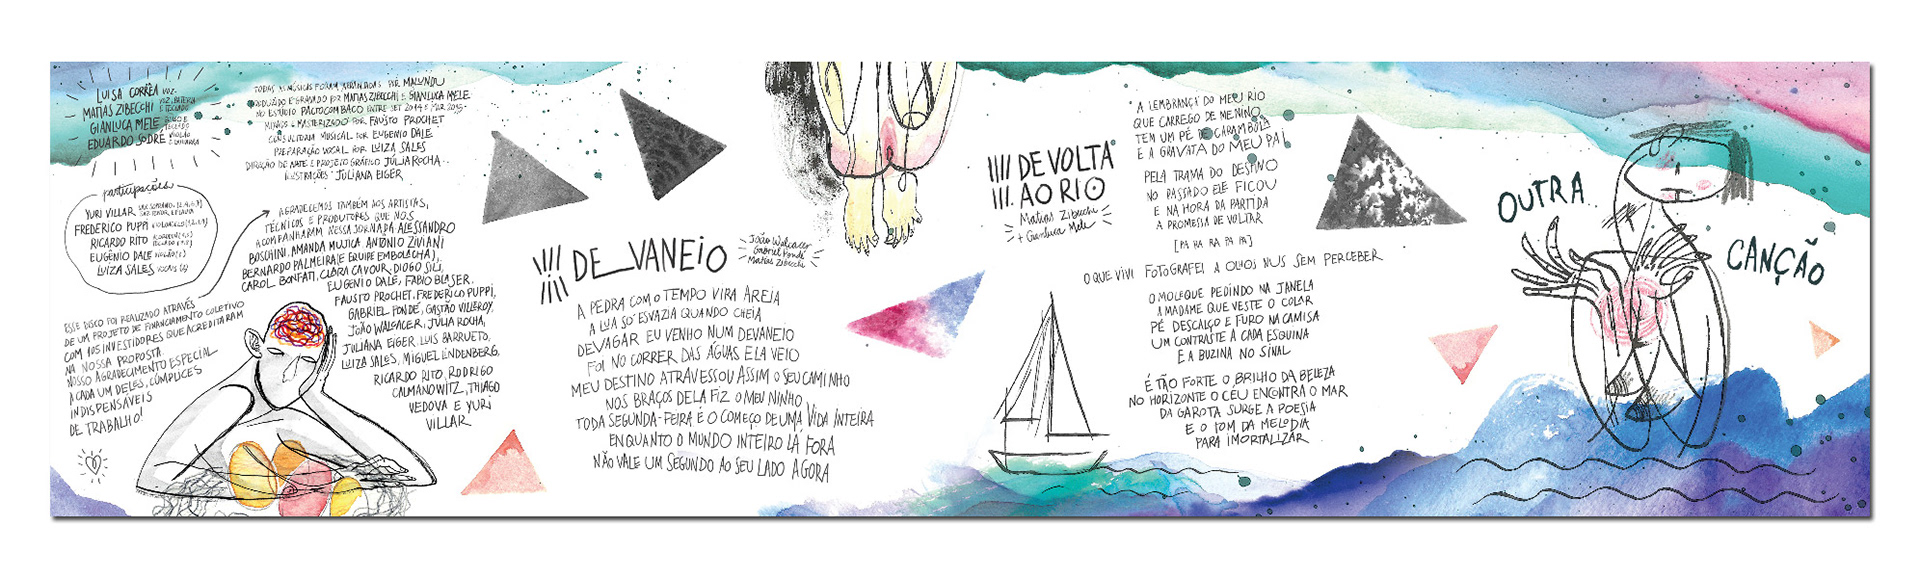 LUISA CORRÊA VOZ
MATIAS ZIBECCHI VOZ, BATERIA E TECLADO
GIANLUCA MELE BAIXO E TECLADO
EDUARDO SODRÉ VIOLÃO E GUITARRA
participações
YURI VILLAR
FREDERICO PUPPI
RICARDO RITO
EUGÊNIO DALE VIOLÃO
LUIZA SALES VOCAIS
ESSE DISCO FOI REALIZADO ATRAVÉS
DE UM PROJETO DE FINANCIAMENTO COLETIVO
COM 105 INVESTIDORES QUE ACREDITARAM
NA NOSSA PROPOSTA.
NOSSO AGRADECIMENTO ESPECIAL
A CADA UM DELES, CÚMPLICES
INDISPENSÁVEIS
DE TRABALHO!
TODAS AS MÚSICAS FORAM ARRANJADAS POR MALUNDU
PRODUZIDO E GRAVADO POR MATIAS ZIBECCHI E GIANLUCA MELE
NO ESTÚDIO PACTOCOMBACO ENTRE SET 2014 E MAR 2015
MIXADO E MASTERIZADO POR FAUSTO PROCHET
CONSULTORIA MUSICAL POR EUGENIO DALE
PREPARAÇÃO VOCAL POR LUIZA SALES
DIREÇÃO DE ARTE E PROJETO GRÁFICO JULIA ROCHA
ILUSTRAÇÕES JULIANA EIGER
AGRADECEMOS TAMBÉM AOS ARTISTAS,
TÉCNICOS E PRODUTORES QUE NOS
ACOMPANHARAM NESSA JORNADA ALESSANDRO
BOSCHINI, AMANDA MUJICA, ANTÔNIO ZIVIANI
BERNARDO PALMEIRA (E EQUIPE EMBOLACHA),
CAROL BONFATI, CLARA CAVOUR, DIOGO SILI,
EUGENIO DALE, FABIO BLASER,
FAUSTO PROCHET, FREDERICO PUPPI,
GABRIEL PONDÉ, GASTÃO VILLEROY,
JOÃO WALGACER, JULIA ROCHA,
JULIANA EIGER, LUIS BARRUETO,
LUIZA SALES, MIGUEL LINDENBERG,
RICARDO RITO, RODRIGO
CALMANOWITZ, THIAGO
VEDOVA E YURI
VILLAR
DE_VANEIO
João Walgacer
Gabriel Pondé
Matias Zibecchi
A PEDRA COM O TEMPO VIRA AREIA
A LUA SÓ ESVAZIA QUANDO CHEIA
DEVAGAR EU VENHO NUM DEVANEIO
FOI NO CORRER DAS ÁGUAS ELA VEIO
MEU DESTINO ATRAVESSOU ASSIM O SEU CAMINHO
NOS BRAÇOS DELA FIZ O MEU NINHO
TODA SEGUNDA-FEIRA É O COMEÇO DE UMA VIDA INTEIRA
ENQUANTO O MUNDO INTEIRO LÁ FORA
NÃO VALE UM SEGUNDO AO SEU LADO AGORA
DE VOLTA
AO RIO
Matias Zibecchi
+ Gianluca Mele
A LEMBRANÇA DO MEU RIO
QUE CARREGO DE MENINO
TEM UM PÉ DE CARAMBOLA
E A GRAVATA DO MEU PAI
PELA TRAMA DO DESTINO
NO PASSADO ELE FICOU
E NA HORA DA PARTIDA
A PROMESSA DE VOLTAR
[PA RA RA PA PA]
O QUE VIVI FOTOGRAFEI A OLHOS NUS SEM PERCEBER
O MOLEQUE PEDINDO NA JANELA
A MADAME QUE VESTE O COLAR
PÉ DESCALÇO E FURO NA CAMISA
UM CONTRASTE A CADA ESQUINA
E A BUZINA NO SINAL
É TÃO FORTE O BRILHO DA BELEZA
NO HORIZONTE O CÉU ENCONTRA O MAR
DA GAROTA SURGE A POESIA
E O TOM DA MELODIA
PARA IMORTALIZAR
OUTRA
CANÇÃO